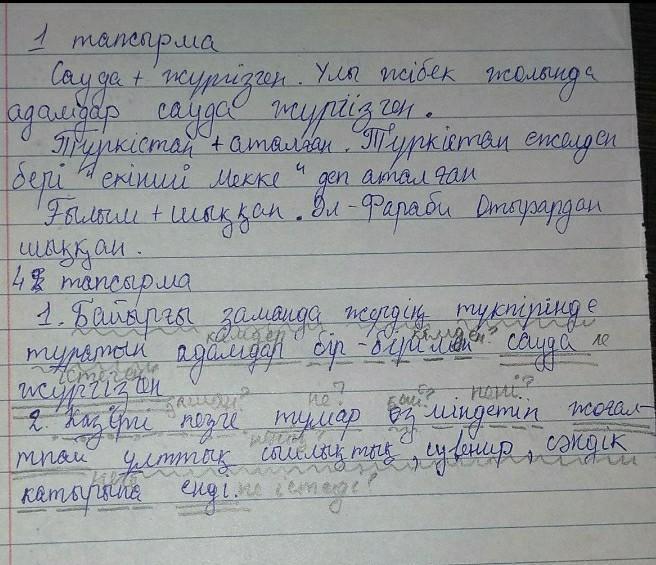 1 тапсырма
Сауда + жүргізген. Ұлы жібек жолында
адамдар сауда жүргізген.
Түркістан + аталған. Түркістан ежелден
бері "екінші Мекке" деп аталған
Ғылым + шыққан. Әл-Фараби Отырардан
шыққан.
4 тапсырма
1. Байырғы заманда жердің түкпірінде
тұратын адамдар бір-бірімен сауда не
жүргізген
2. Қазіргі кезге тұмар өз міндетін жоғал-
тпай ұлттық сыйлықтық, сувенир, сәндік
қатырына енді. не істеді?